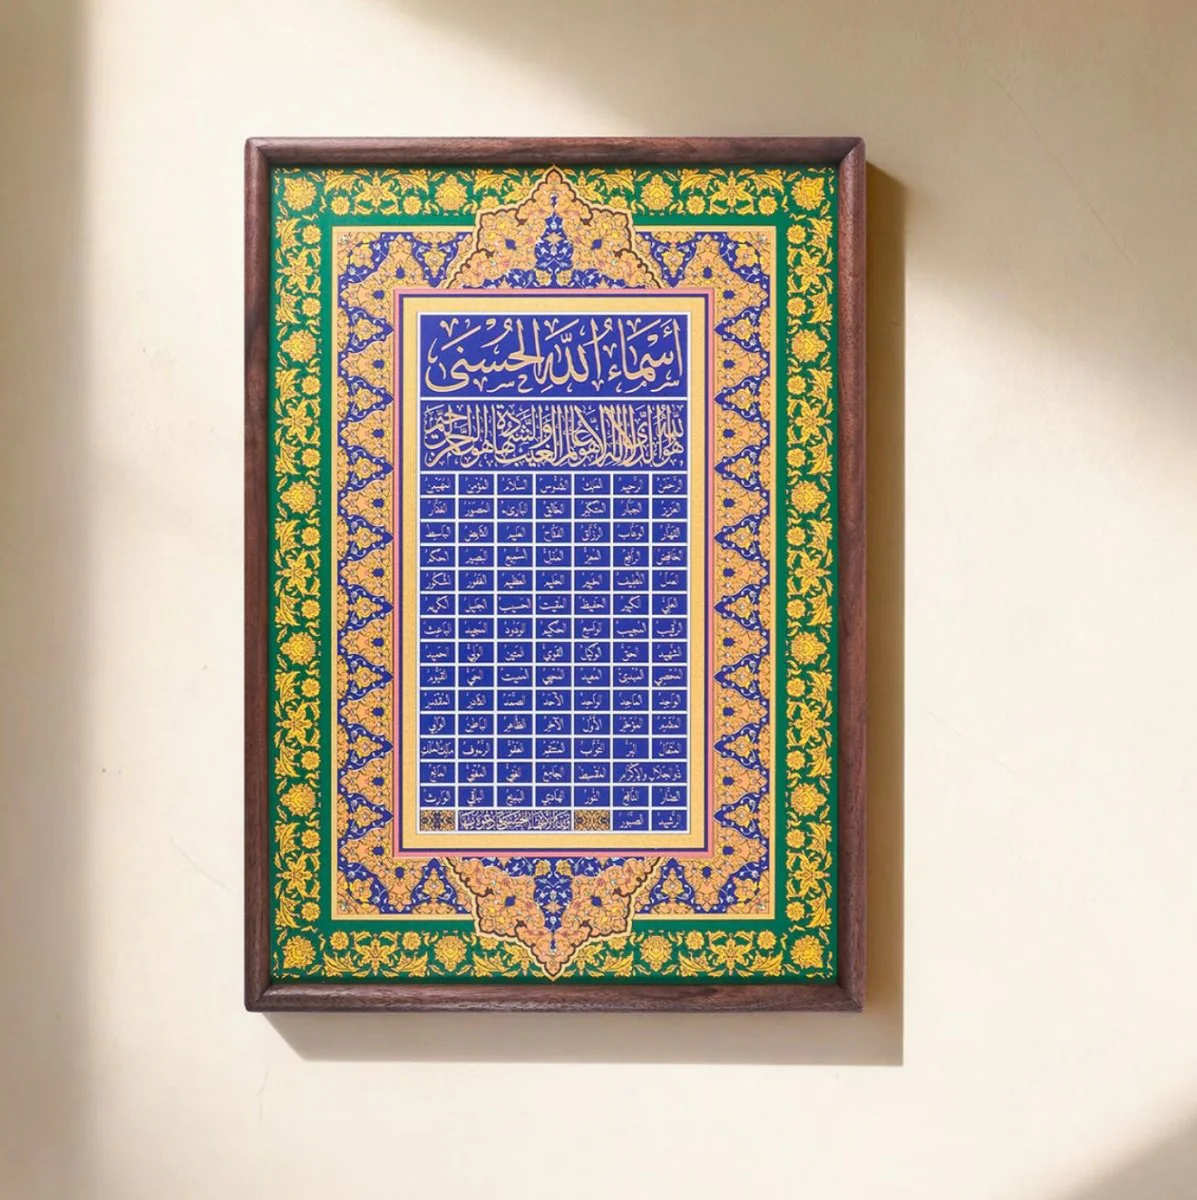 أَسْمَاءُ اللّٰهِ الحُسْنَى
هو الله الذي لا إله إلا هو عالم الغيب والشهادة هو الرحمن الرحيم
الرحمن الرحيم الملك القدوس السلام المؤمن المهيمن
العزيز الجبار المتكبر الخالق البارىء المصور الغفار
القهار الوهاب الرزاق الفتاح العليم القابض الباسط
الخافض الرافع المعز المذل السميع البصير الحكم
العدل اللطيف الخبير الحليم العظيم الغفور الشكور
العلي الكبير الحفيظ المقيت الحسيب الجليل الكريم
الرقيب المجيب الواسع الحكيم الودود المجيد الباعث
الشهيد الحق الوكيل القوي المتين الولي الحميد
المحصي المبدئ المعيد المحيي المميت الحي القيوم
الواجد الماجد الواحد الأحد الصمد القادر المقتدر
المقدم المؤخر الأول الآخر الظاهر الباطن الوالي
المتعال البر التواب المنتقم العفو الرءوف مالك الملك
ذو الجلال والإكرام المقسط الجامع الغني المغني المانع
الضار النافع النور الهادي البديع الباقي الوارث
الرشيد الصبور ولله الأسماء الحسنى فادعوه بها